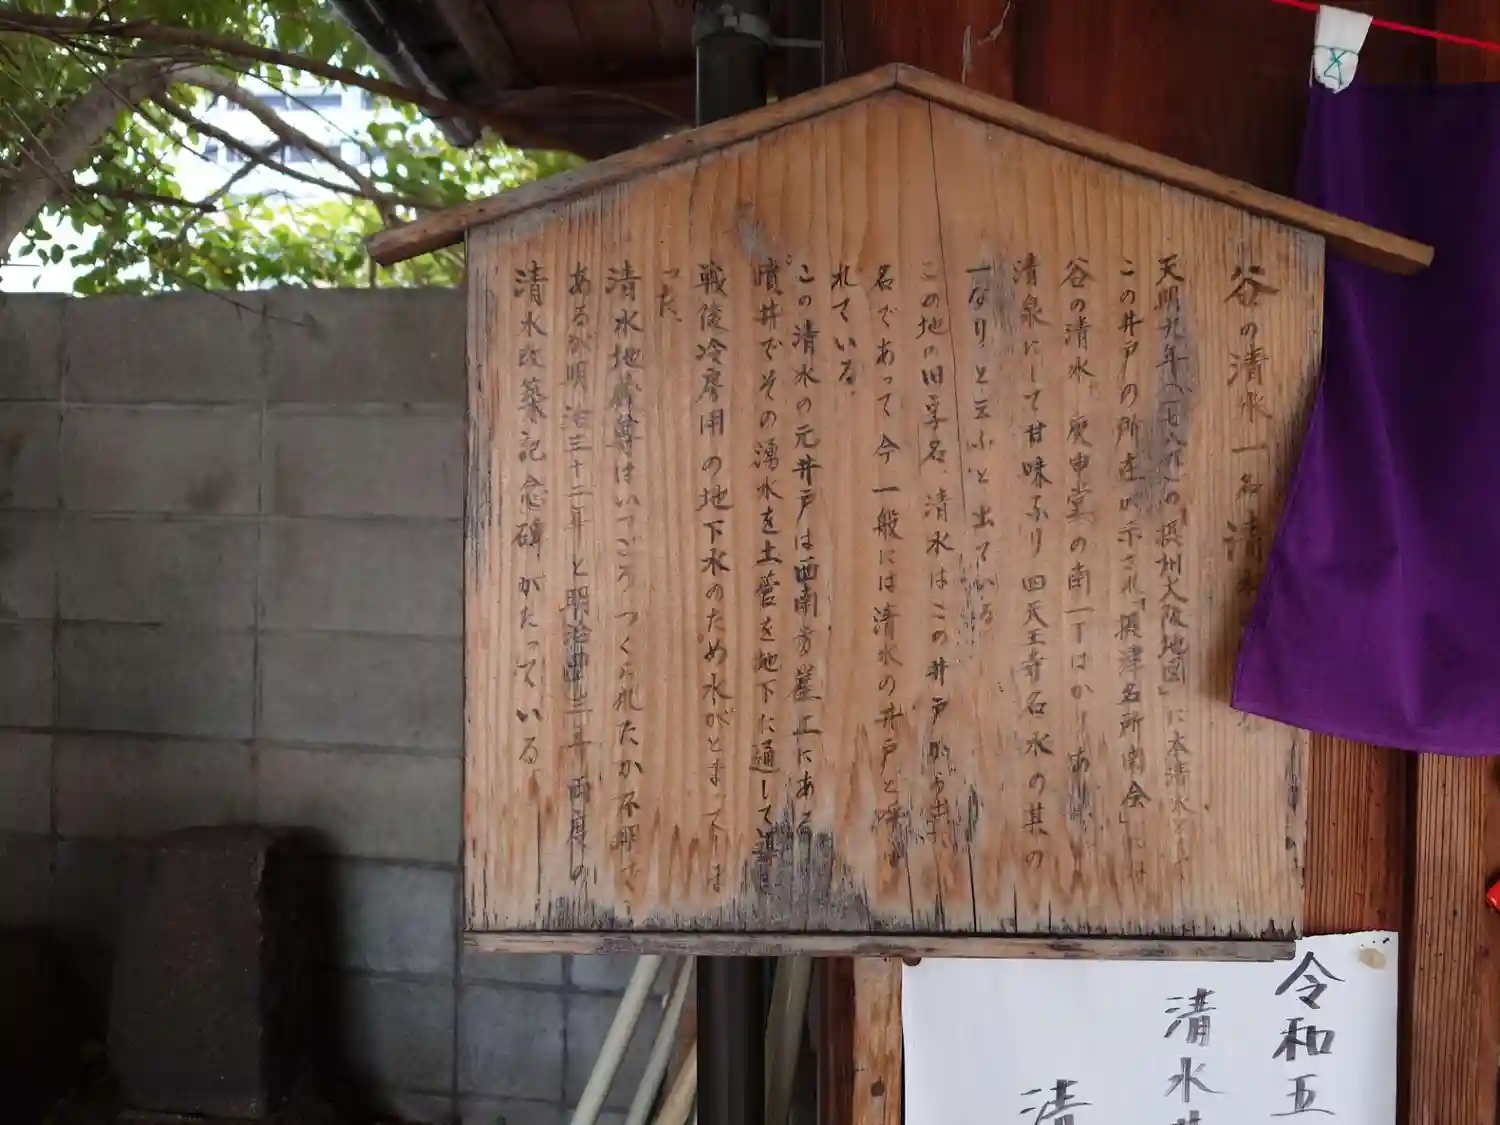 谷の清水 一名 清
天明九年(一七八九)の「摂州大阪地図」に本清水として
この井戸の所在が示され「摂津名所図会」には
谷の清水 庚申堂の南一丁ばかりあり
清泉にして甘味なり 四天王寺名水の其の
一なりと云ふと出ている
この地の旧字名、清水はこの井戸から出た
名であって今一般には清水の井戸と呼ば
れている。
この清水の元井戸は西南方崖上にある
噴井でその湧水を土管を地下に通して導
戦後冷房用の地下水のため水がとまってしま
った。
清水地蔵尊はいつごろつくられたか不明で
あるが明治三十二年と明治四十三年両度の
清水改築記念碑がたっている
令和五
清水井
清